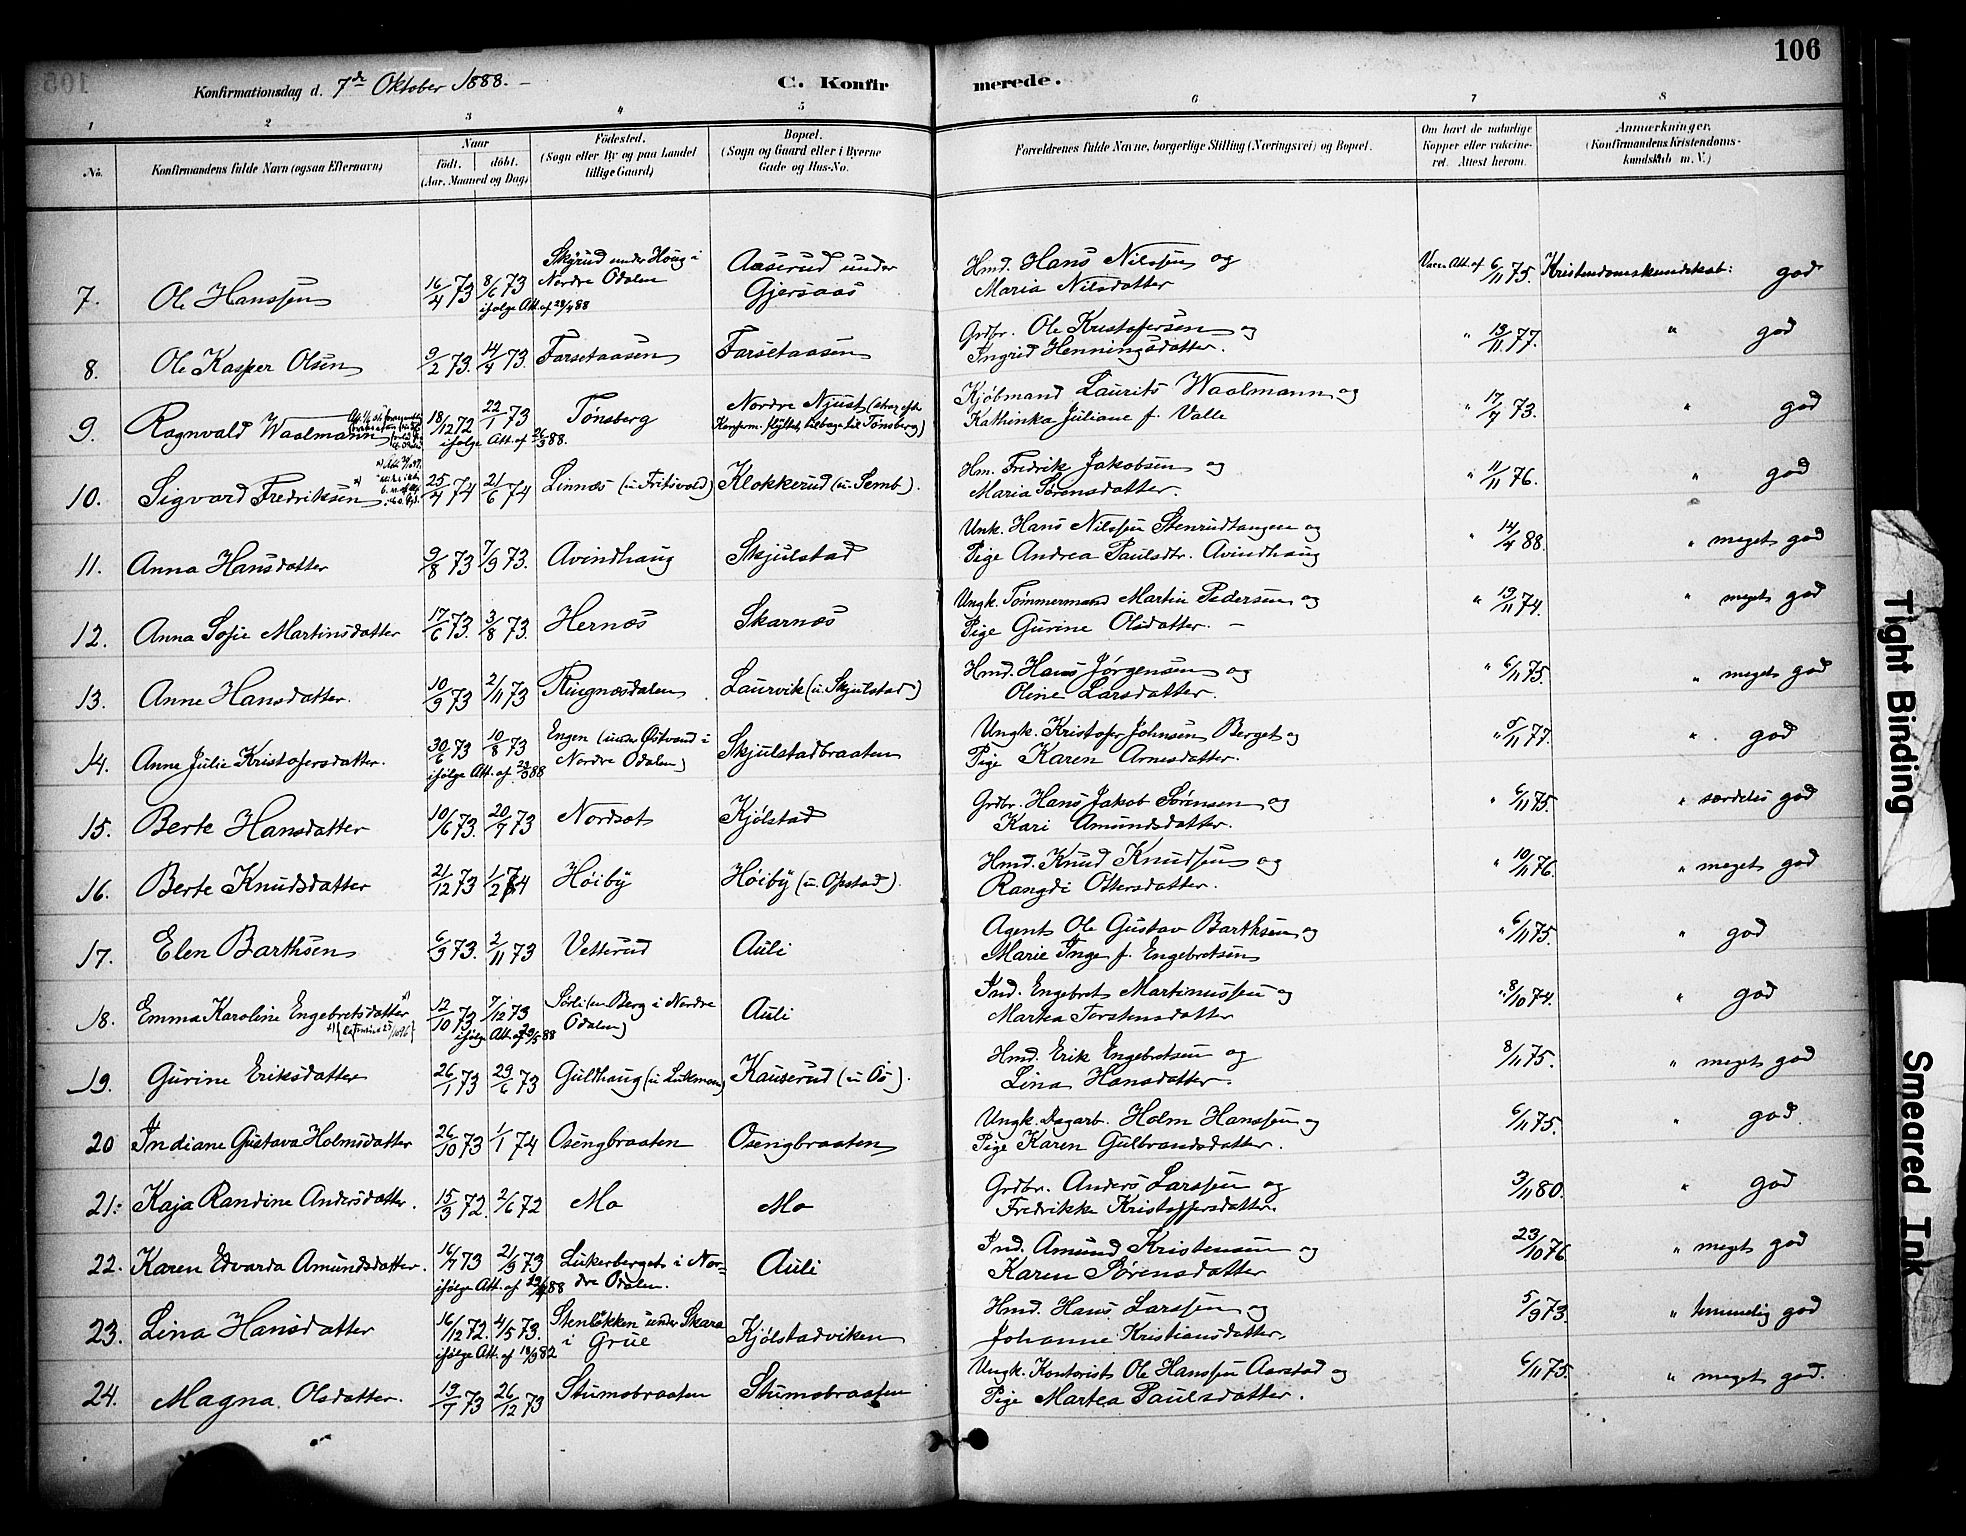 106
Konfirmationsdag d. 7de Oktober 1888. –
C. Konfirmerede.
1 2 3 4 5 6 7 8
No.
Konfirmandens fulde Navn (ogsaa Efternavn)
Naar
født. døbt.
(Aar. Maaned og Dag)
Fødested.
(Sogn eller By og paa Landet
tillige Gaard)
Bopæl.
(Sogn og Gaard eller i Byerne
Gade og Hus-No.
Forældrenes fulde Navne, borgerlige Stilling (Næringsvei) og Bopæl.
Om havt de naturlige
Kopper eller vakcine-
ret. Attest herom.
Anmærkninger.
(Konfirmandens Kristendoms-
kundskab m. V.)
7. Ole Hanssen 16/4 73 8/6 73 ifølge Att. af 28/4 88 Skyrud under Houg i Nordre Odalen Aaserud under Gjersaas Hmd. Hans Nilssen og Maria Nilsdatter Vacc. Att. af 6/11 75. Kristendomskundskab: god
8. Ole Kasper Olsen 9/2 73. 14/4 73. Farsetaasen Farsetaasen Grdbr. Ole Kristofersen og Ingrid Henningsdatter. " 13/11 77. " god
9. Ragnvald Waalmann 18/12 72 22/1 73 ifølge Att. af 26/3 88. Tønsberg Nordre Njust (strax efter Konferm. flyttet tilbage til Tønsberg) Kjøbmand Laurits Waalmann og Kathinka Juliane f. Valle " 17/7 73. " god
10. Sigvard Fredriksen 25/4 74 21/6 74 Linnæs (u. Fritsvold) Klokkerud (u. Semb). Hm. Fredrik Jakobsen og Maria Sørensdatter. " 11/11 76. " god
11. Anna Hansdatter 9/8 73 7/9 73. Avindhaug Skjulstad Unk. Hans Nilssen Stenrudtangen og Pige Andrea Paulsdtr. Avindhaug " 14/4 88. " meget god
12. Anna Sofie Martinsdatter 17/6 73. 3/8 73. Hernæs Skarnæs Ungk. Tømmermand Martin Pedersen og Pige Gurine Olsdatter. – " 13/11 74. " meget god
13. Anne Hansdatter. 10/9 73 2/11 73 Ringnæsdalen Laurvik (u. Skjulstad) Hmd. Hans Jørgensen og Oline Larsdatter. " 6/11 75. " meget god
14. Anne Julie Kristofersdatter. 30/6 73 10/8 73 ifølge Att. af 88 Engen (under Østvand i Nordre Odalen) Skjulstadbraaten Ungk. Kristofer Johnsen Berget og Pige Karen Arnesdatter. " 5/11 77. " god
15. Berte Hansdatter 10/6 73. 20/7 73 Nordset Kjølstad Grdbr. Hans Jakob Sørensen og Kari Amundsdatter. " 6/11 75. " særdeles god
16. Berte Knudsdatter 21/12 73 1/2 74 Høiby Høiby (u. Opstad). Hmd. Knud Knudsen og Rangdi Ottersdatter. " 10/11 76. " meget god
17. Elen Barthsen 6/9 73. 2/11 73 Vetterud Auli Agent Ole Gustav Barthsen og Marie Inge f. Engebretsen " 6/11 75. " god
18. Emma Karoline Engebretsdatter 12/10 73 7/12 73 ifølge Att. af 29/5 88 Sørli (u Berg i Nordre Odalen) Auli Ind. Engebret Martinussen og Martea Torstensdatter " 8/10 74. " god
19. Gurine Eriksdatter 26/1 73 29/6 73 Guldhaug (u Lutmoen) Kauserud (u Os). Hmd. Erik Engebretsen og Lina Hansdatter. 8/11 75. " meget god
20 Indiane Gustava Holmsdatter 26/10 73 1/1 74 Osengbraaten Osengbraaten Ungk. Dagarb. Holm Hanssen og Pige Karen Gulbrandsdatter. 6/11 75. " god.
21. Kaja Randine Andersdatter. 15/3 72. 2/6 72 Mo Mo Grdbr. Anders Larssen og Fredrikke Kristoffersdatter. 3/11 80. " god
22. Karen Edvarda Amundsdatter. 16/7 73 21/9 73 ifølge Att. af 88 Lukerberget i Nordre Odalen. Auli Ind. Amund Kristensen og Karen Sørensdatter 23/10 76 " meget god
23. Lina Hansdatter 16/12 72. 4/5 73. ifølge Att. af 18/9 82 Stenløkken under Skara i Grue Kjølstadviken Hmd. Hans Larssen og Johanne Kristiansdatter. 5/9 73. " temmelig god
24. Magna Olsdatter. 19/7 73 26/12 73 Stumobraaten Stumobraaten Ungk. Kontorist Ole Hanssen Aarstad og Pige Martea Paulsdatter. 6/11 75. " meget god.
Tight Binding
Smeared Ink